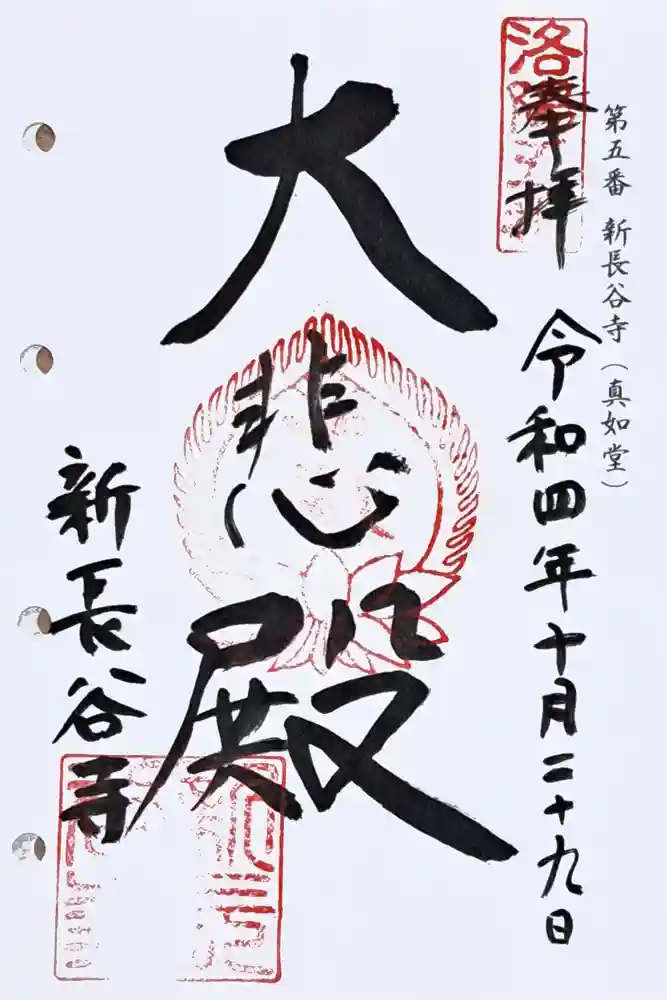 第五番 新長谷寺（真如堂）
奉拝
令和四年十月二十九日
大悲殿
新長谷寺
洛